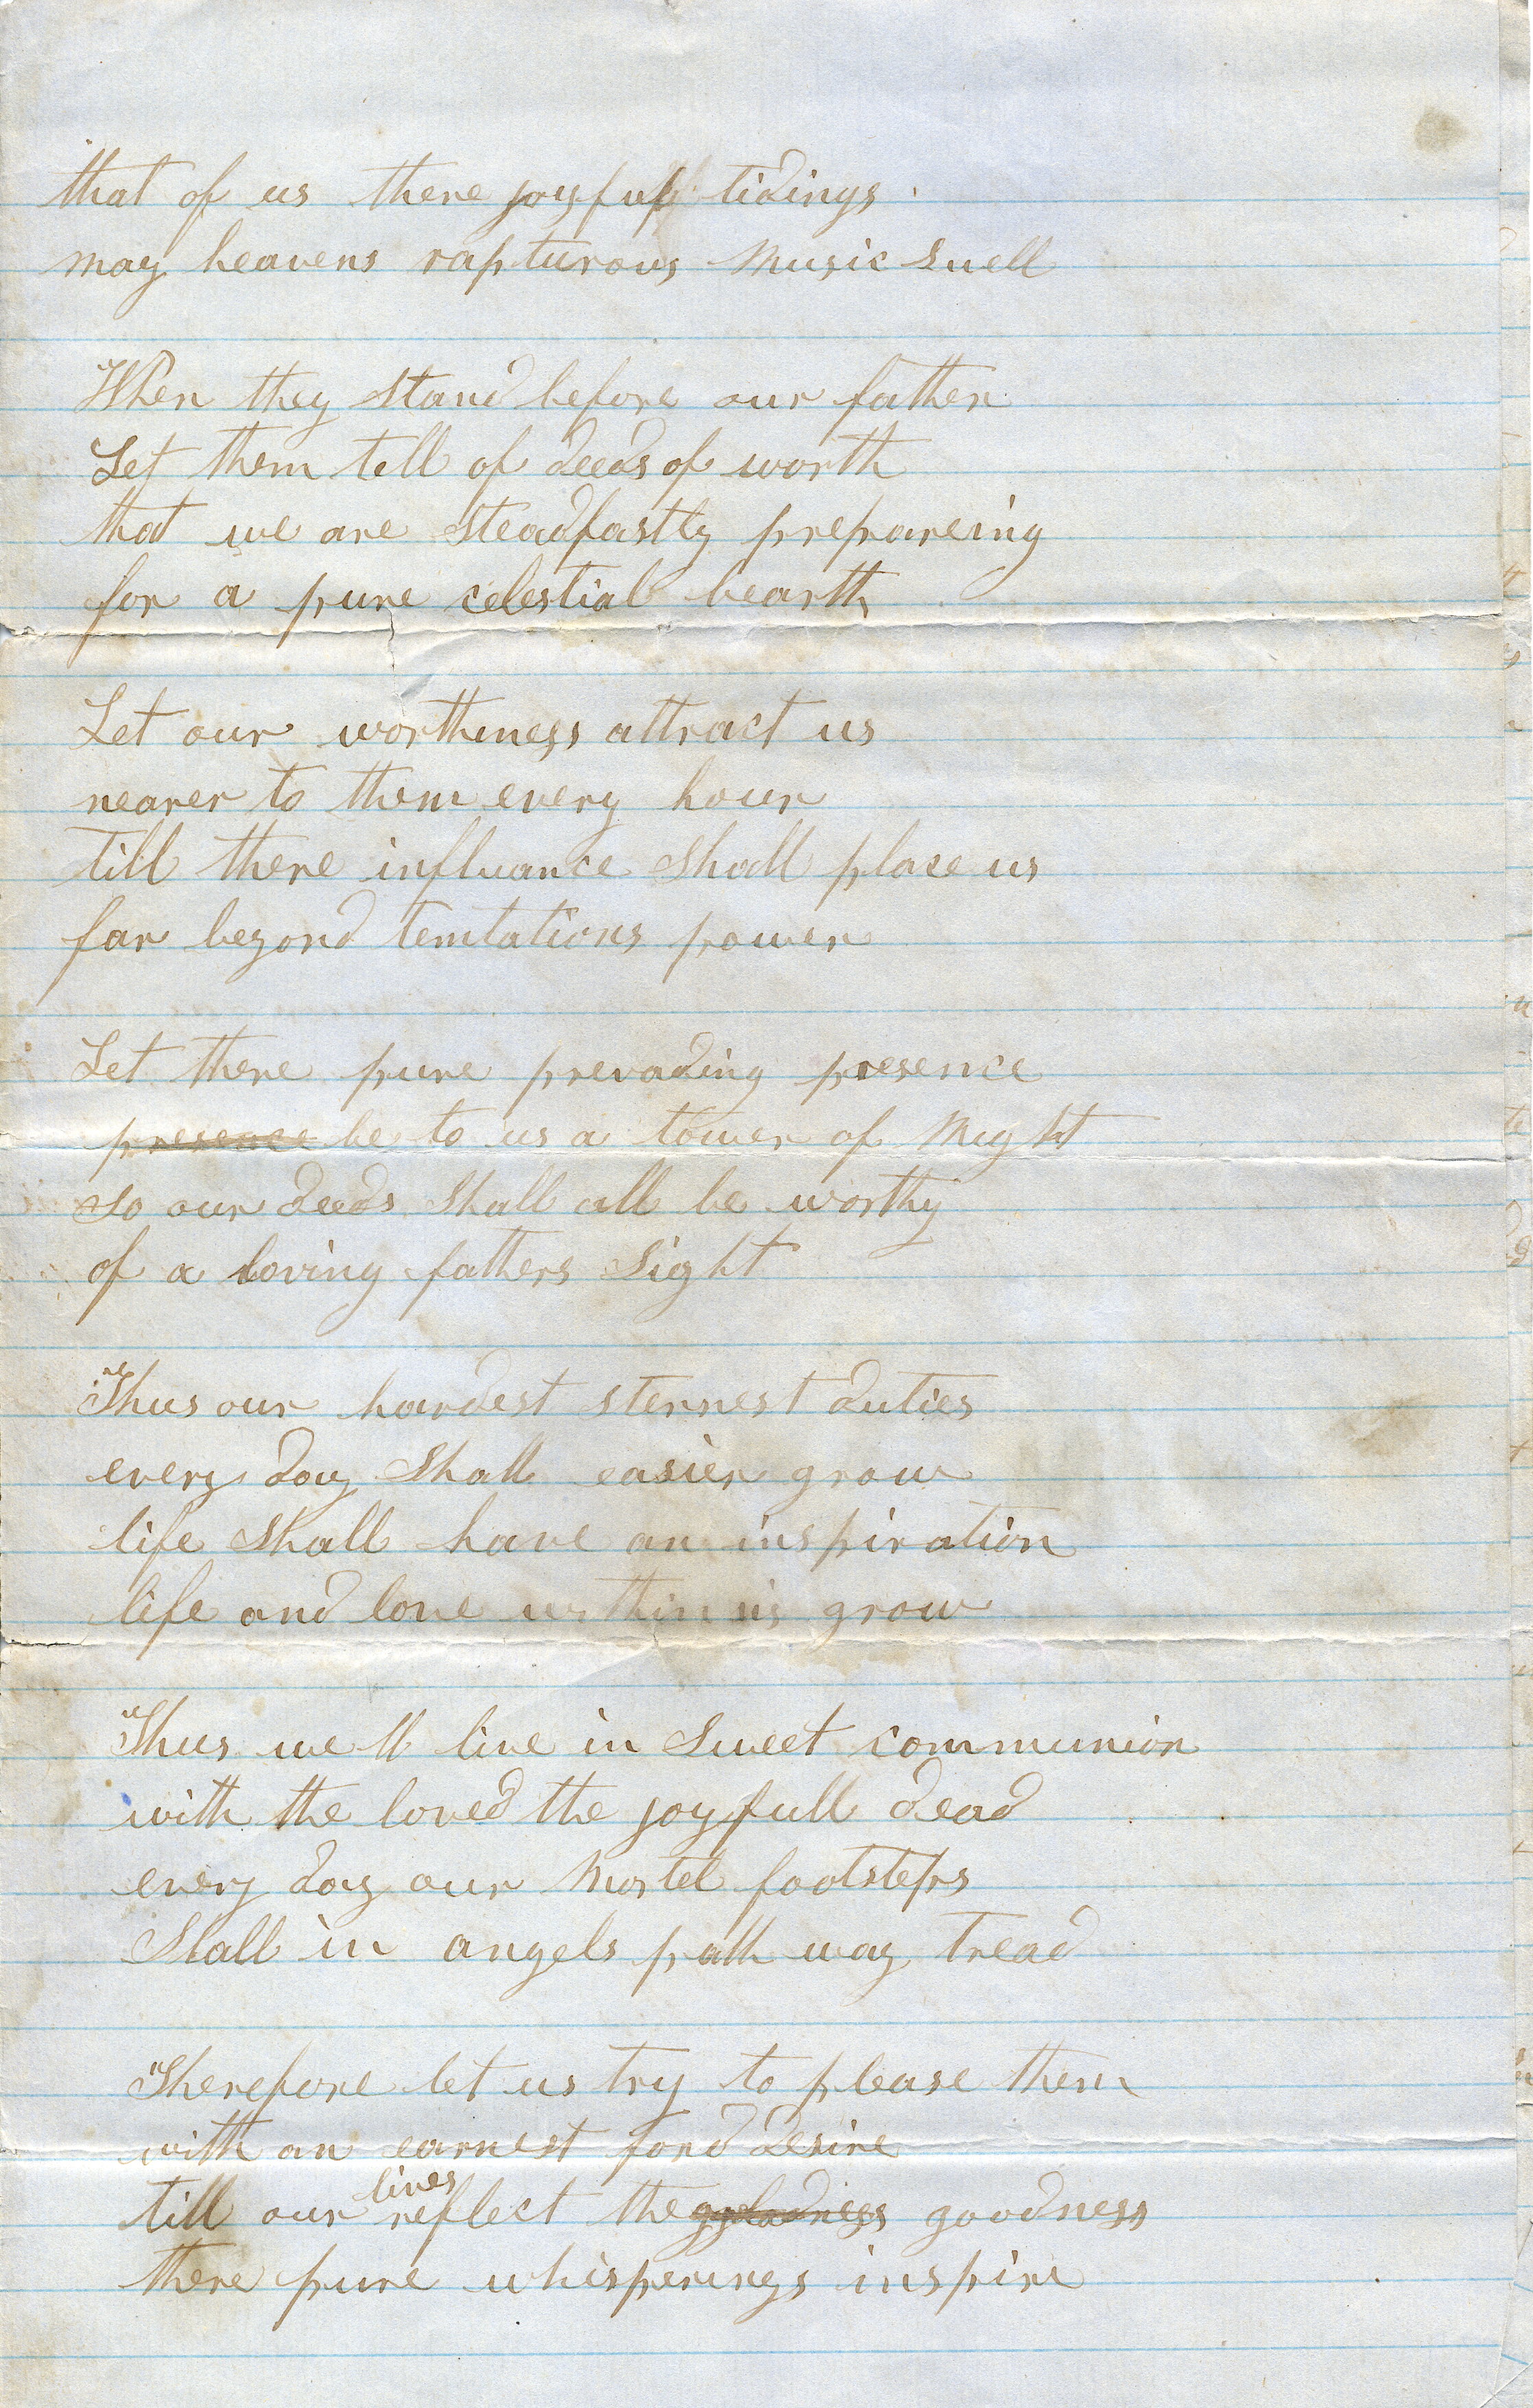 that of us there joyful tidings
may heavens rapturous Music Swell
When they Stand before our father
Let them tell of deeds of worth
that we are Steadfastly prepareing
for a pure celestial hearth
Let our worthiness attract us
nearer to them every hour
till there influance Shall place us
far beyond temtations power
Let there pure prevading presence
presence be to us a tower of Might
So our deeds Shall all be worthy
of a loving fathers Sight
Thus our hardest sternest duties
every day Shall easier grow
life Shall have an inspiration
life and love within us grow
Thus we ll live in Sweet communion
with the loved the joyfull dead
every day our Mortel footsteps
Shall in angels path way tread
Therefore let us try to please them
with an earnest fond desire
lives
till our reflect the ggladness goodness
there pure whisperings inspire